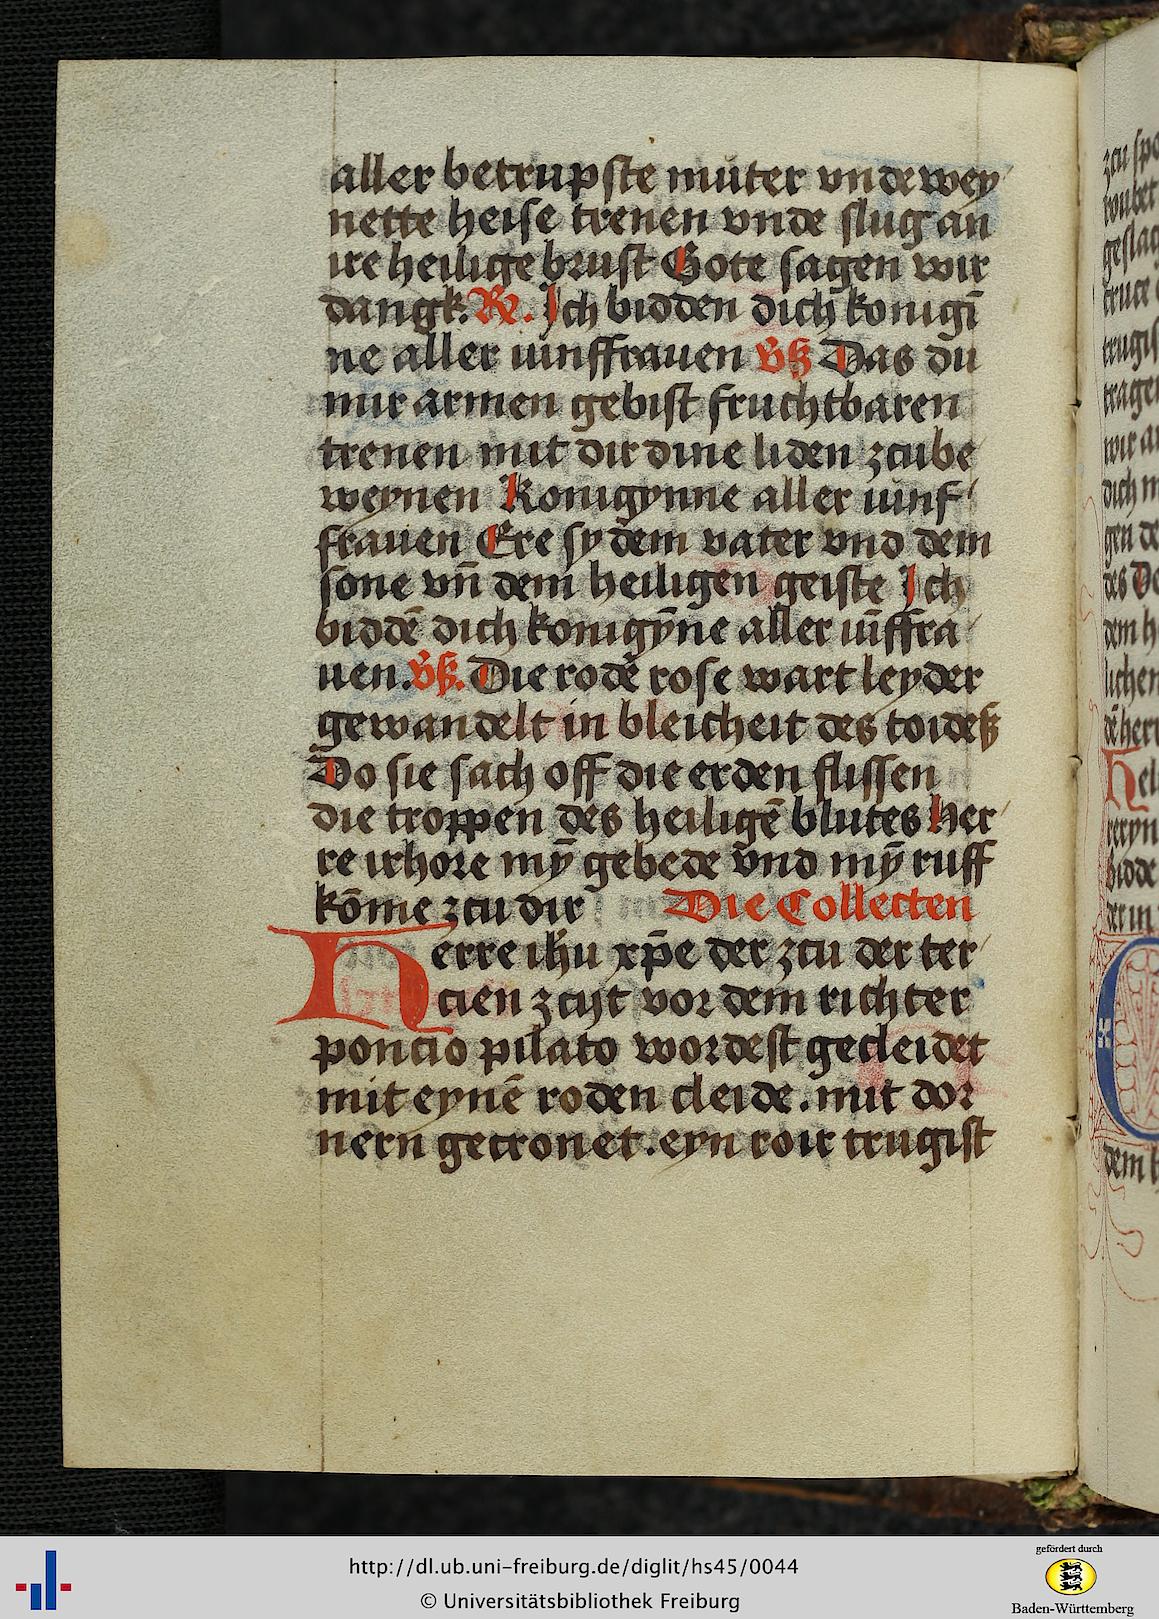 aller betrupste muter vnde wey
nette heise trenen vnde slug an
ire heilige brust Gote sagen wir
dangk. R̃. Ich bidden dich konigī
ne aller iunffrauen Vß Das du
mir armen gebist fruchtbaren
trenen mit dir dine liden zcu be
weynen Konigynne aller iunf
frauen Ere sy dem vater vnd dem
sone vn̄ dem heiligen geiste Ich
biddē dich konigȳne aller iūffra
uen. Vß. Die rodē rose wart leyder
gewandelt in bleicheit des toideß
Do sie sach off die erden flissen
die troppen des heiligē blutes her
re irhore mȳ gebede vnd mȳ ruff
kōme zcu dir Die Collecten
Herre ih̄u xp̄e der zcu der ter
cien zcijt vor dem richter
poncio pilato wordest gecleidet
mit eynē roden cleide. mit dor
nern gecronet. eyn roir trugist
http://dl.ub.uni-freiburg.de/diglit/hs45/0044
© Universitätsbibliothek Freiburg
gefördert durch
Baden-Württemberg